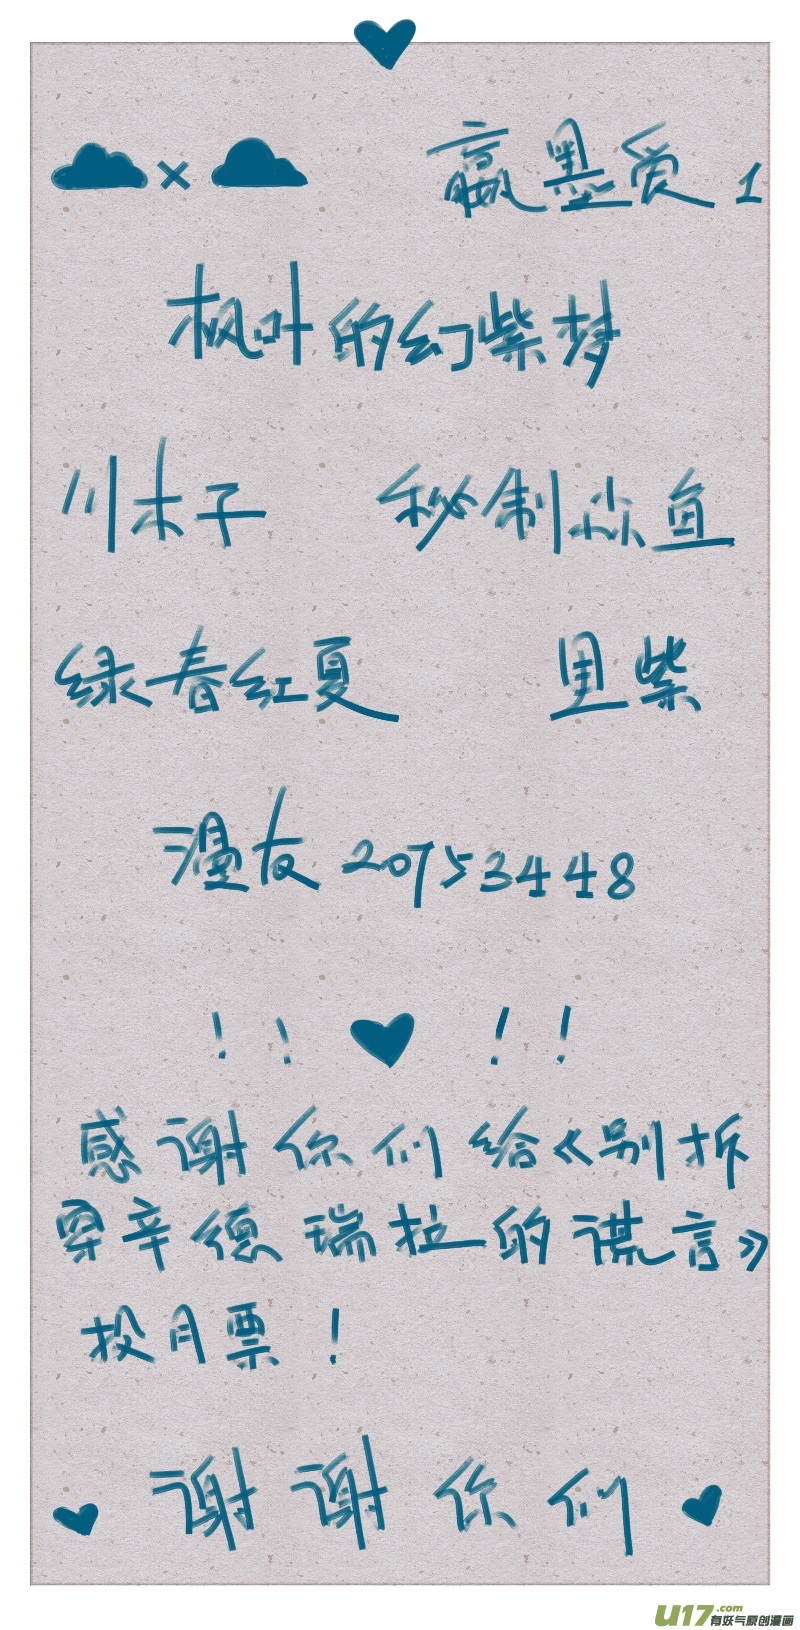 × 嬴墨爱1
枫叶的幻紫梦
川木子 秘制杰鱼
绿春红夏 里紫
漫友20753448
！！ ！！
感谢你们给《别拆
穿辛德瑞拉的谎言》
投月票！
谢谢你们
U17.com
有妖气原创漫画